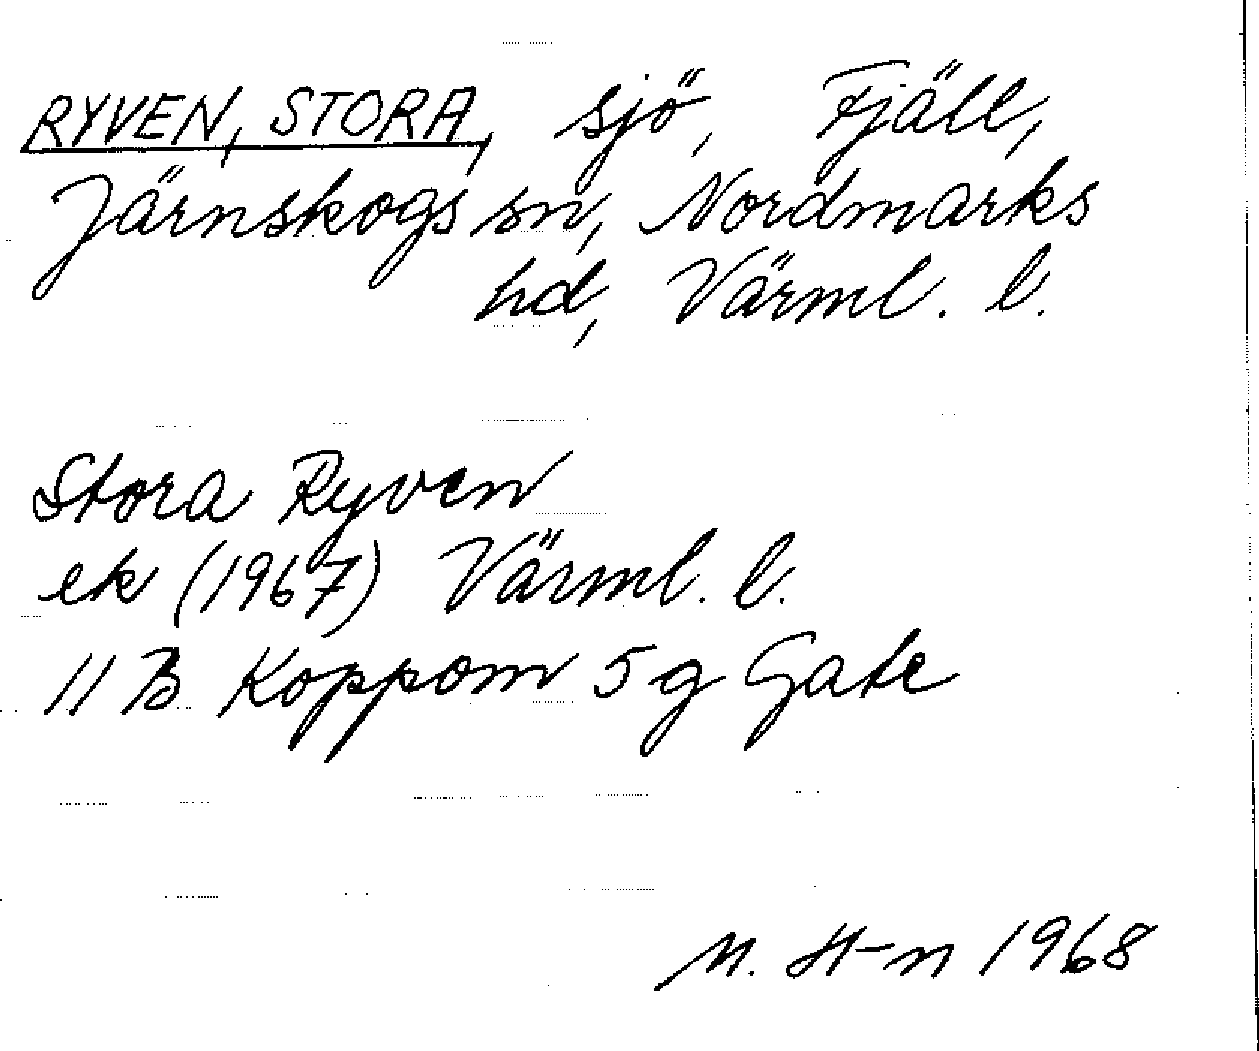 RYVEN, STORA, sjö, Fjäll,
Järnskogs sn, Nordmarks
hd, Värml. l.
Stora Ryven
ek (1967) Värml. l.
11 B Koppom 5 g Gate
M. H-n 1968